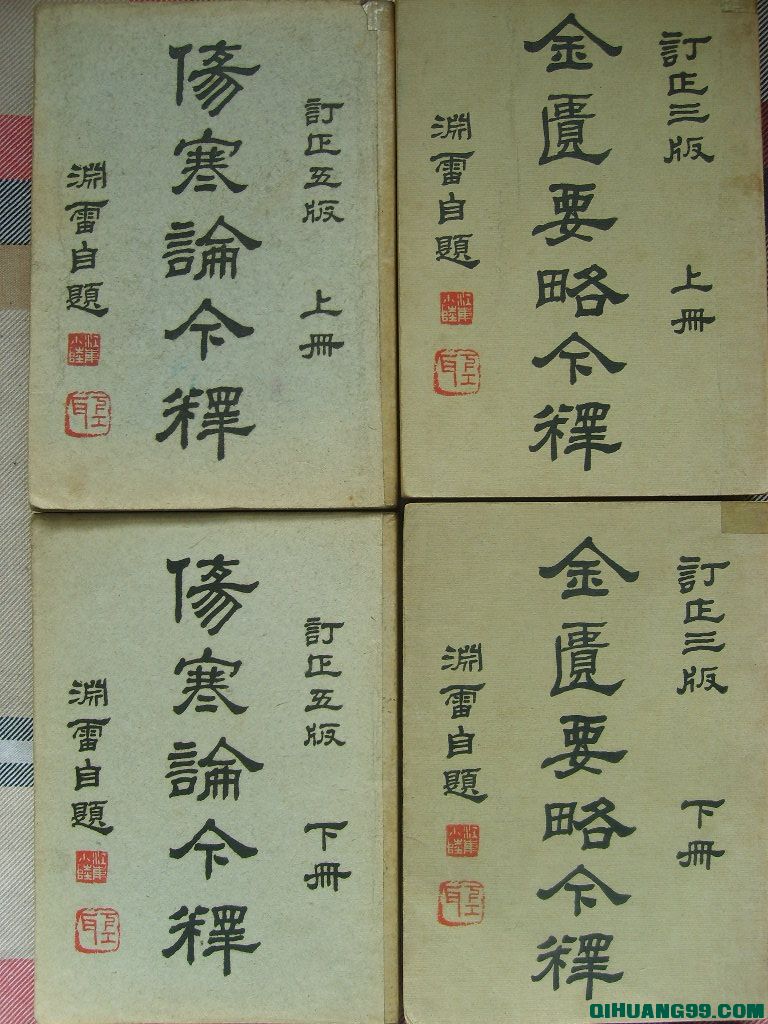 訂正五版 上冊
傷寒論今釋
淵雷自題
訂正三版 上冊
金匱要略今釋
淵雷自題
訂正五版 下冊
傷寒論今釋
淵雷自題
訂正三版 下冊
金匱要略今釋
淵雷自題
QIHUANG99.COM